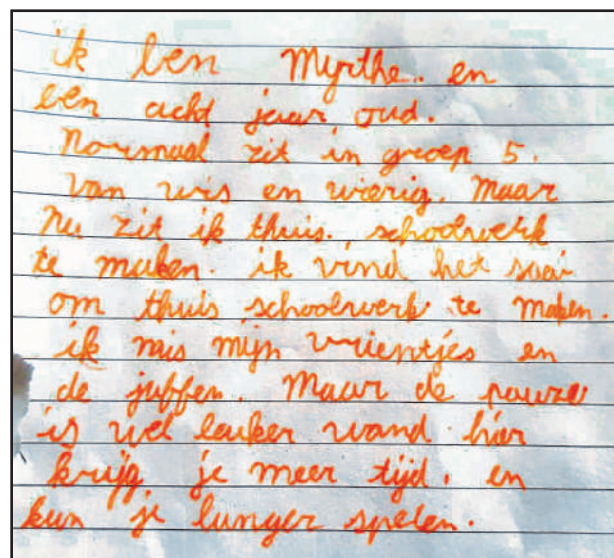 ik ben Myrthe. en
ben acht jaar oud.
Normaal zit in groep 5.
van wis en wierig. Maar
nu zit ik thuis. schoolwerk
te maken. ik vind het saai
om thuis schoolwerk te maken.
ik mis mijn vrientjes en
de juffen. Maar de pauze
is wel leuker wand hier
krijg je meer tijd. en
kun je langer spelen.